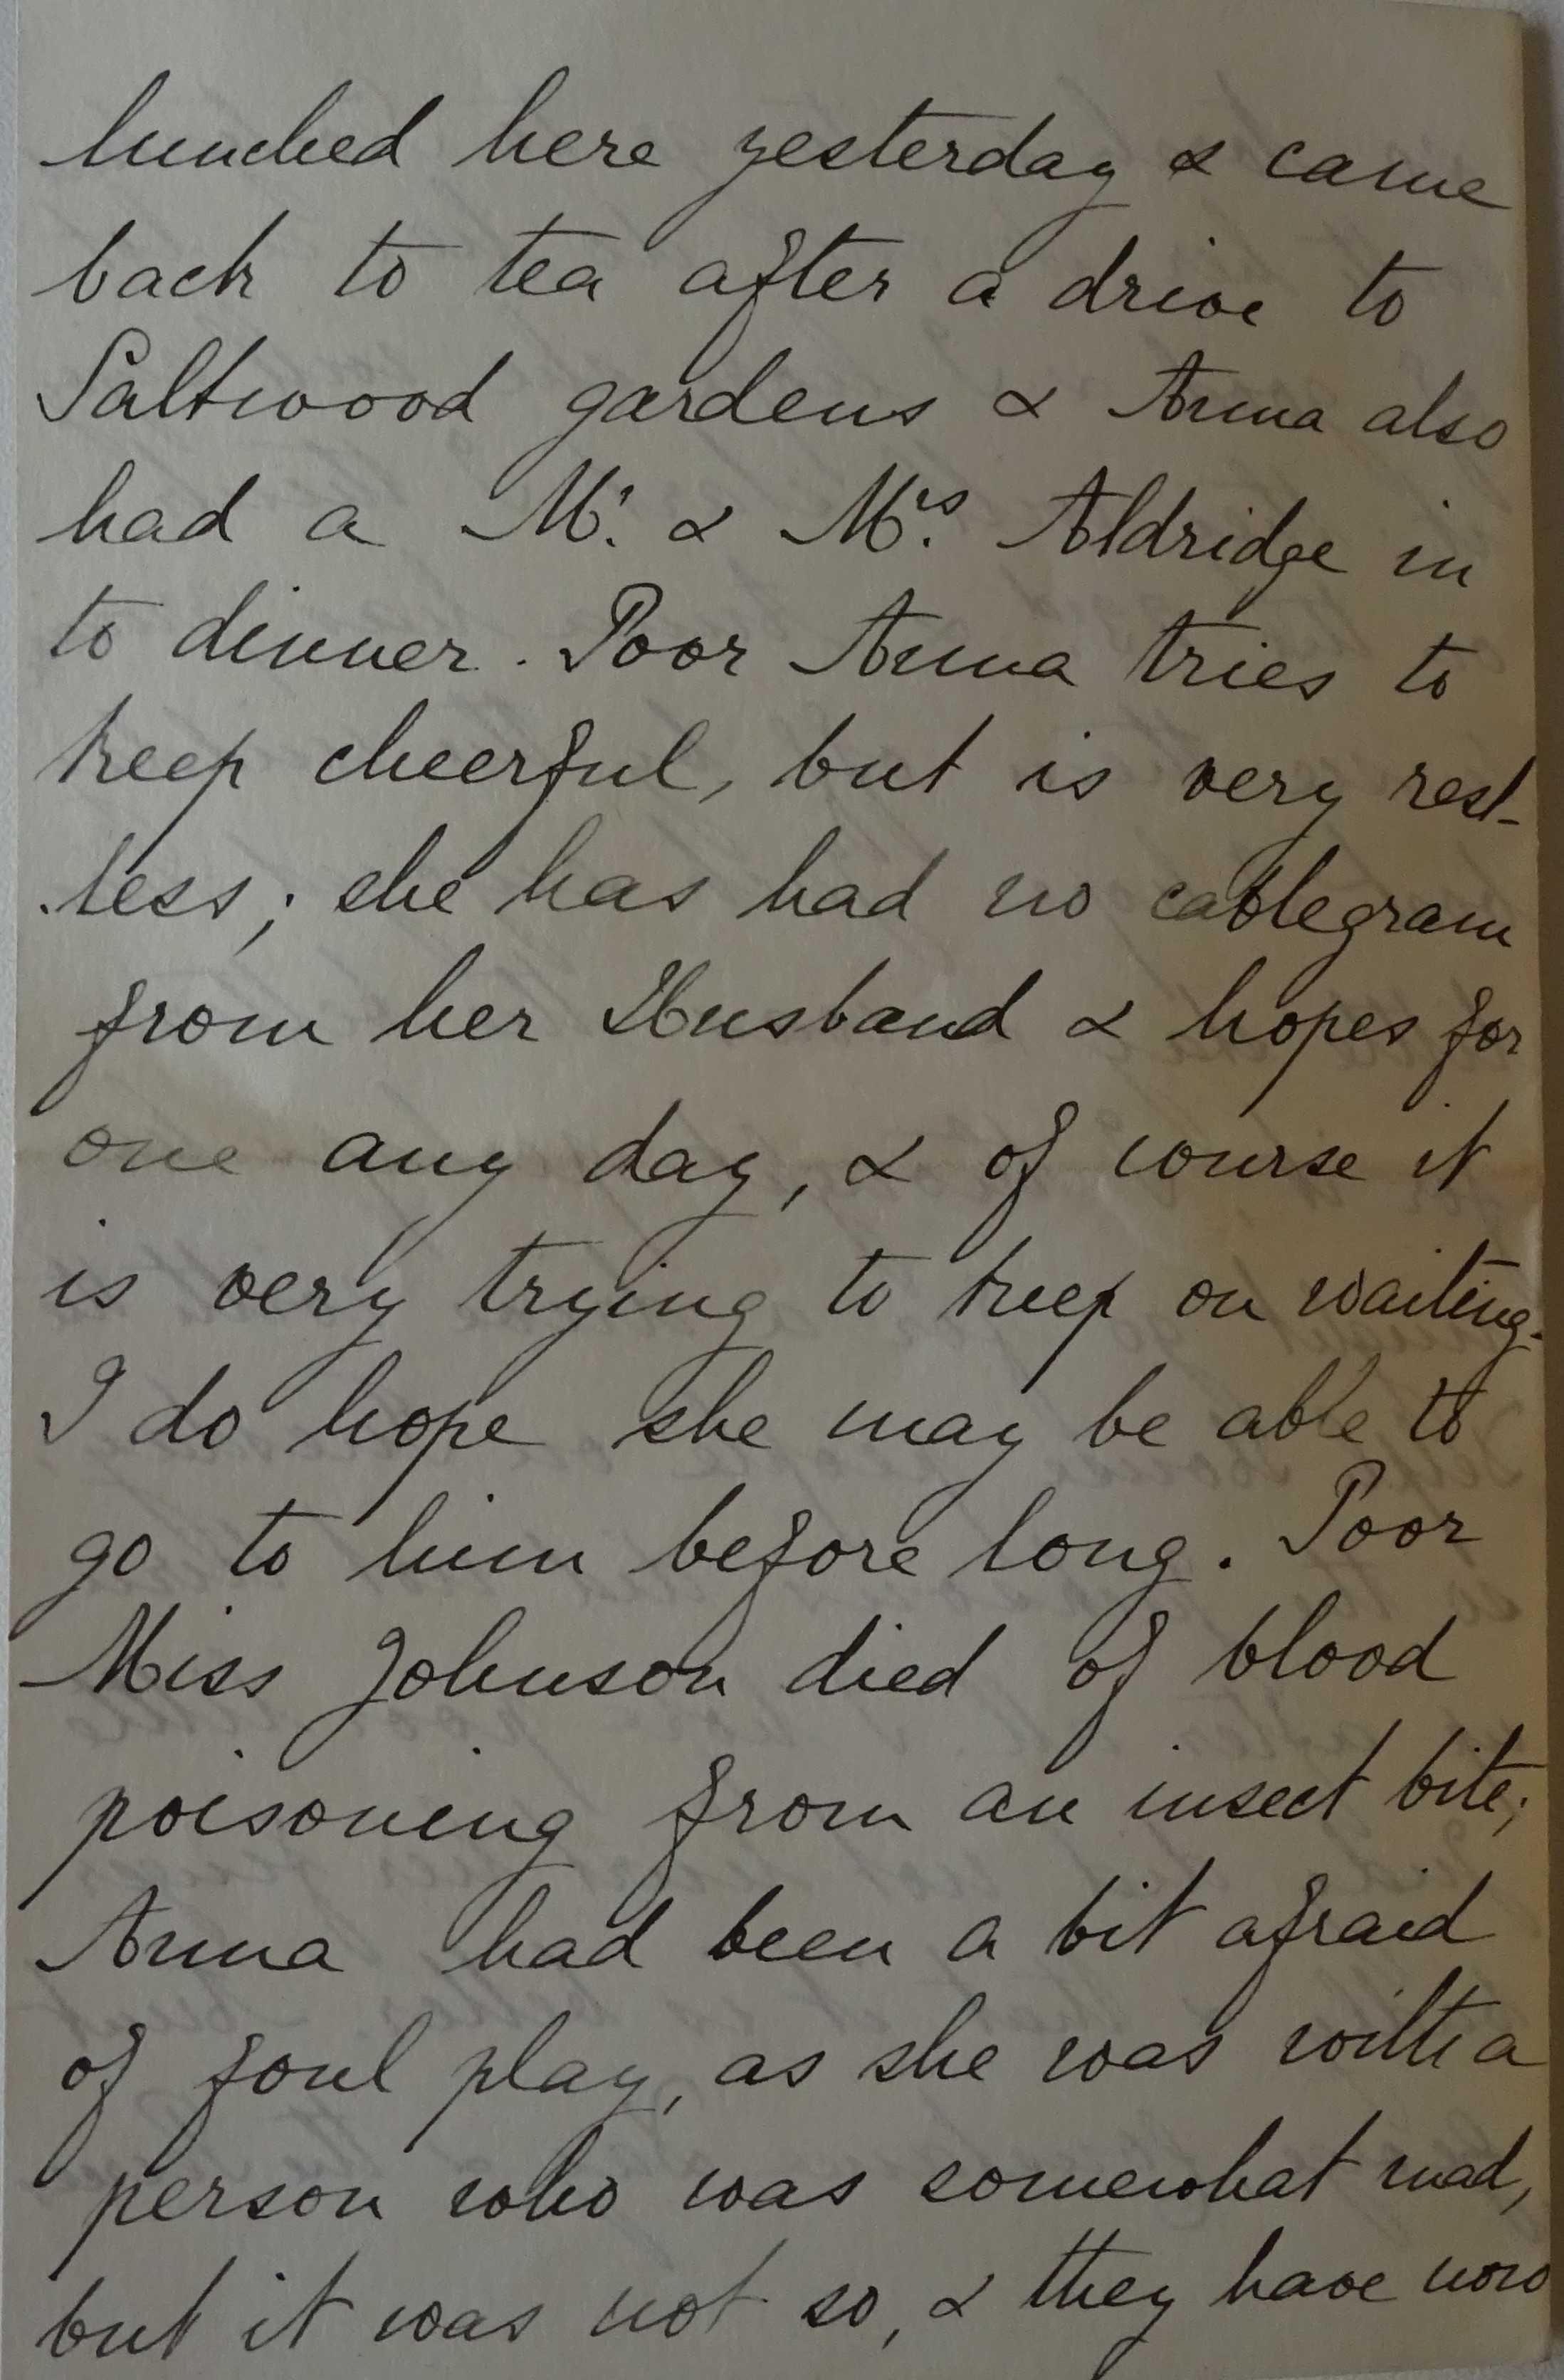 lunched here yesterday & came
back to tea after a drive to
Saltwood gardens & Anna also
had a Mr. & Mrs. Aldridge in
to dinner. Poor Anna tries to
keep cheerful, but is very rest-
-less; she has had no cablegram
from her Husband & hopes for
one any day, & of course it
is very trying to keep on waiting.
I do hope she may be able to
go to him before long. Poor
Miss Johnson died of blood
poisoning from an insect bite;
Anna had been a bit afraid
of foul play, as she was with a
person who was somewhat mad,
but it was not so, & they have now